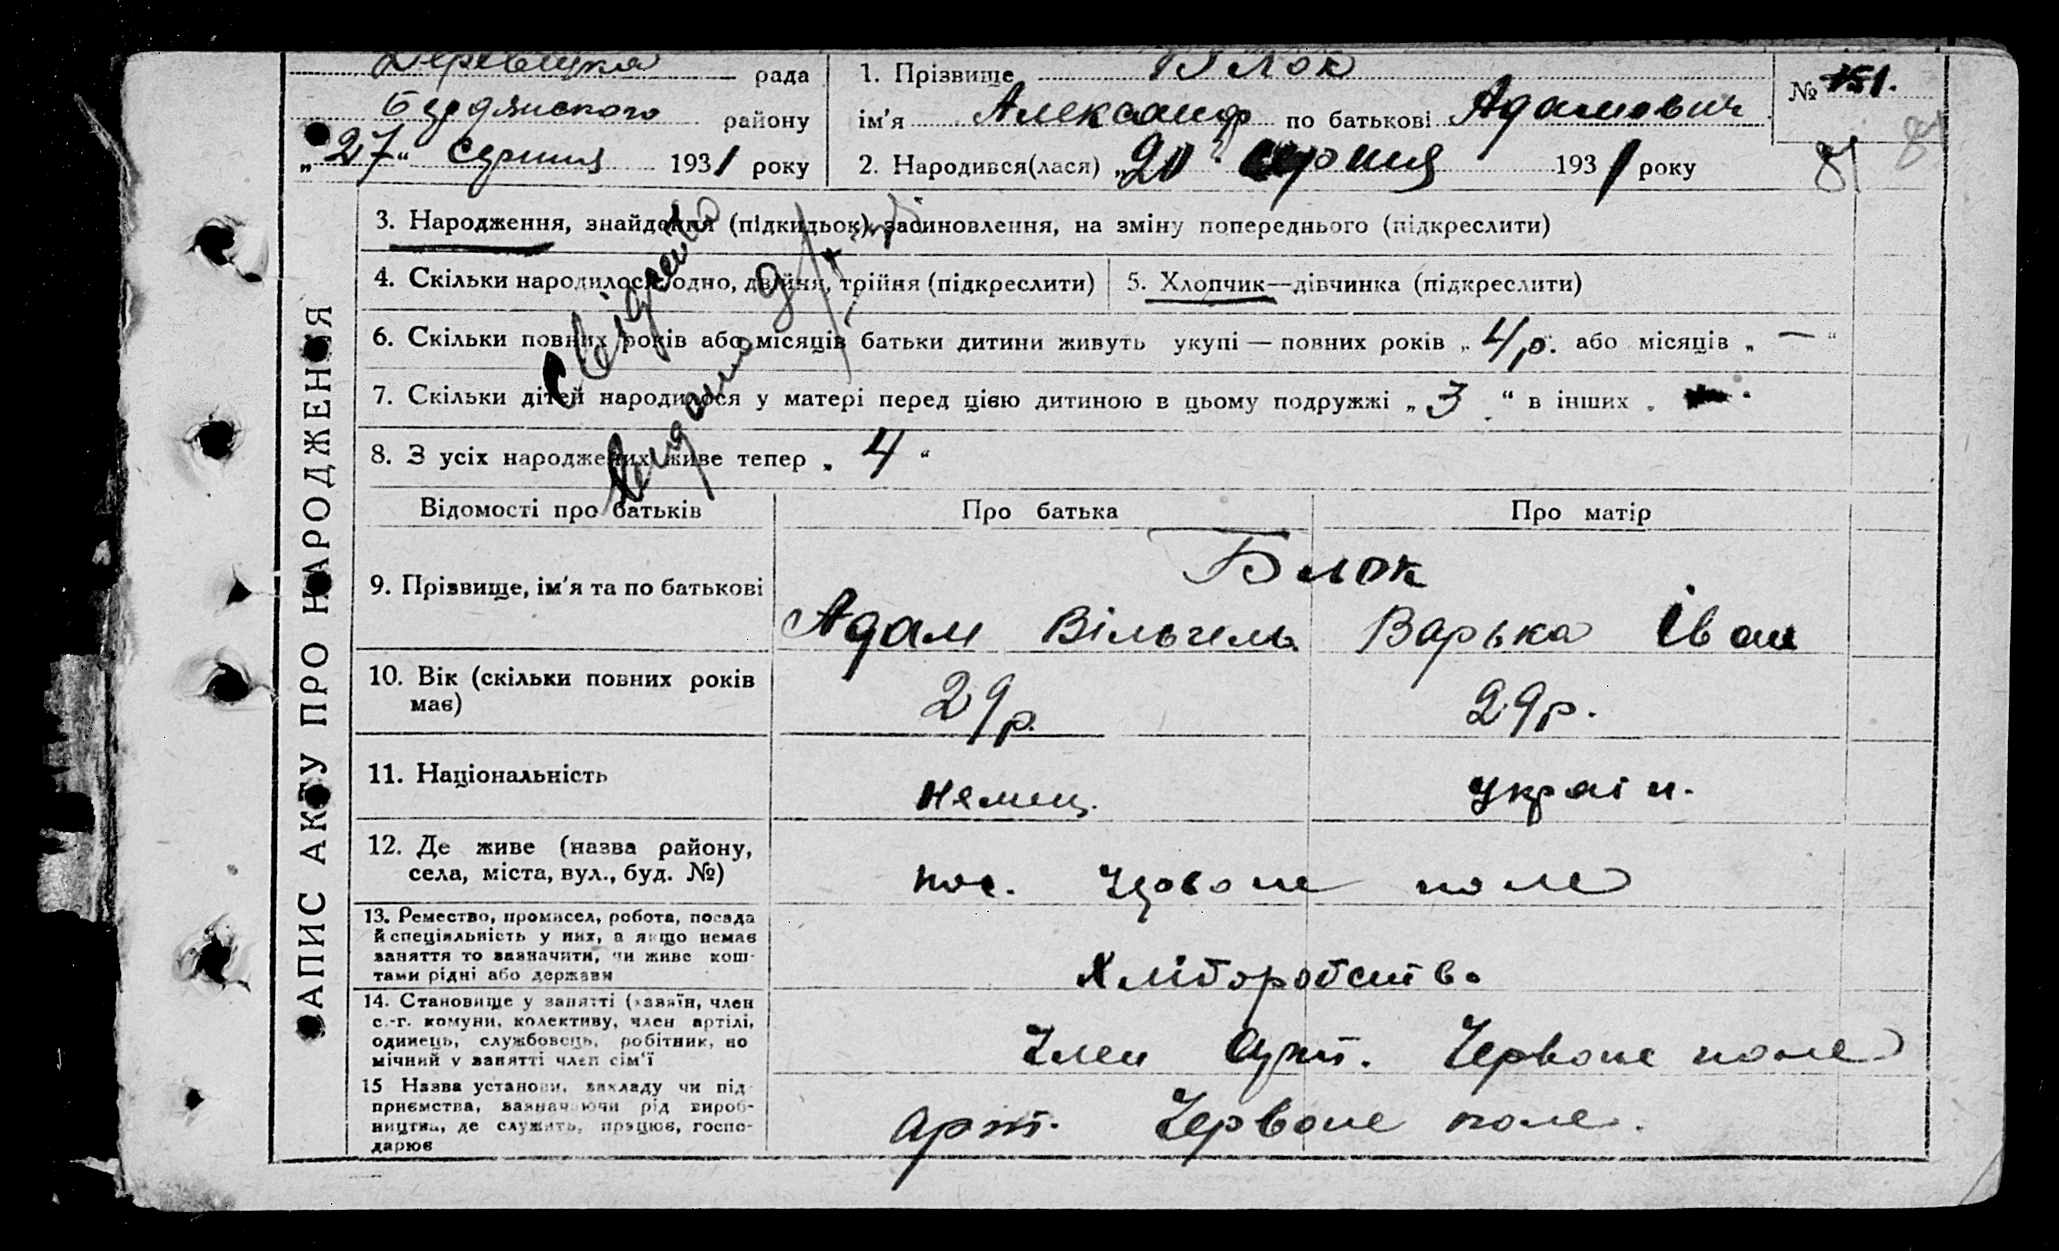 рада
1. Прізвище Блок
№ 151.
району
ім'я Александр по батькові Адамович
„27“ серпня 1931 року
2. Народився(лася) „20 серпня 1931 року
81
81
3. Народження, знайдення (підкидьок), засиновлення, на зміну попереднього (підкреслити)
4. Скільки народилося: одно, двійня, трійня (підкреслити)
5. Хлопчик—дівчинка (підкреслити)
6. Скільки повних років або місяців батьки дитини живуть укупі — повних років „4 р. або місяців „ — “
7. Скільки дітей народилося у матері перед цією дитиною в цьому подружжі „3“ в інших „
8. З усіх народжених живе тепер „4“
Свідоцтво
видано
ЗАПИС АКТУ ПРО НАРОДЖЕННЯ
Відомості про батьків
Про батька
Про матір
Блок
9. Прізвище, ім'я та по батькові
Адам Вільгельм
Варька Іван
10. Вік (скільки повних років
має)
29 р.
29 р.
11. Національність
немец.
україн.
12. Де живе (назва району,
села, міста, вул., буд. №)
пос. Червоне поле
13. Ремество, промисел, робота, посада
й спеціяльність у них, а якщо немає
заняття то зазначити, чи живе кош-
тами рідні або держави
Хліборобство
14. Становище у занятті (хазяїн, член
с.-г. комуни, колективу, член артілі,
одинець, службовець, робітник, по
мічний у занятті член сім'ї
Член Арт. Червоне поле
15 Назва установи, закладу чи під
приємства, зазначаючи рід вироб-
ництва, де служить, працює, госпо-
дарює
Арт. Червоне поле.